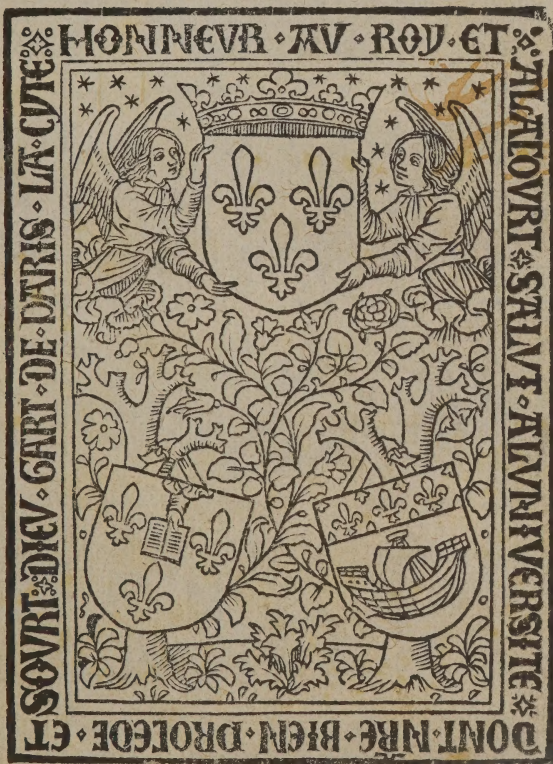 HONNEVR · AV · ROY · ET
A LA COVRT · SALVT · A LVNIVERSITE
DONT · NRE · BIEN · PROCEDE · ET
SOVRT · DIEV · GART · DE · PARIS · LA · CITE